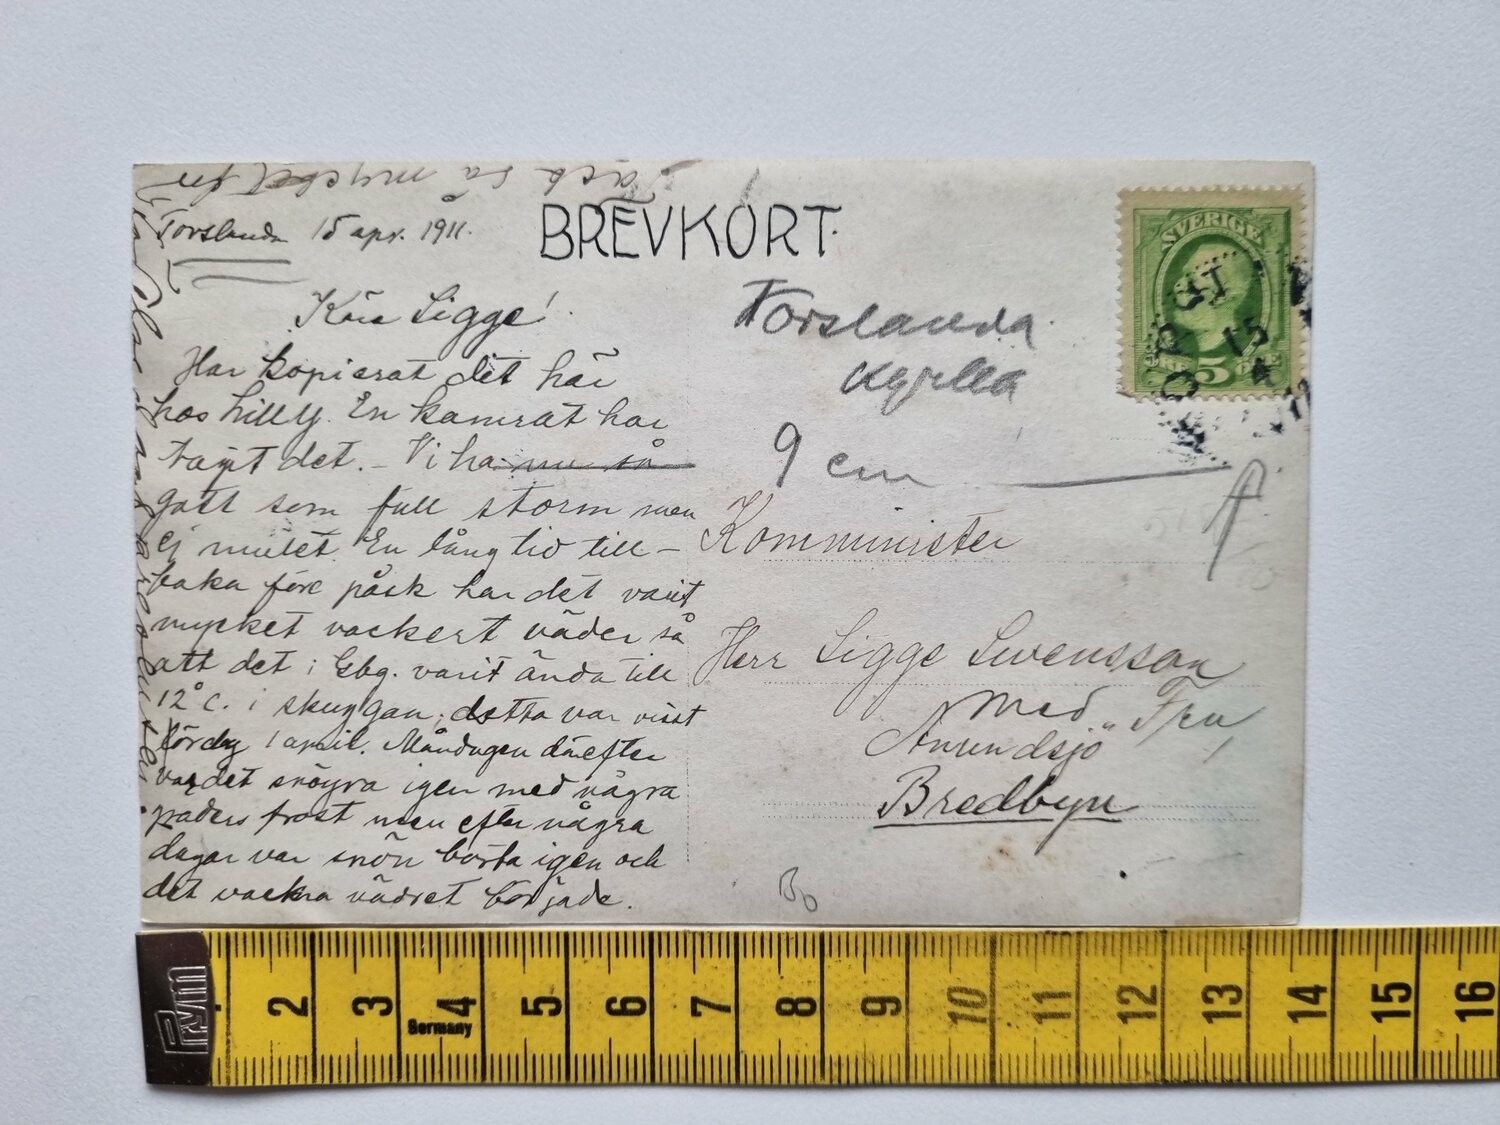 Tack så mycket för
Torslanda 15 apr. 1911.
BREVKORT.
Käre Sigge!
Har kopierat det här
hos Lilly. En kamrat har
tagit det. – Vi ha nu så
gott som full storm men
ej mulet. En lång tid till-
baka före påsk har det varit
mycket vackert väder så
att det i Gbg. varit ända till
12°C. i skuggan, detta var visst
lördag 1 april. Måndagen därefter
var det snöyra igen med några
graders frost men efter några
dagar var snön borta igen och
det vackra vädret började.
SVERIGE
5
15
4
11
Torslanda
Kyrka
9 cm
Komminister
Herr Sigge Swensson
med Fru
Anundsjö
Bredbyn
Prym
2 3 4 5 6 7 8 9 10 11 12 13 14 15 16
Germany